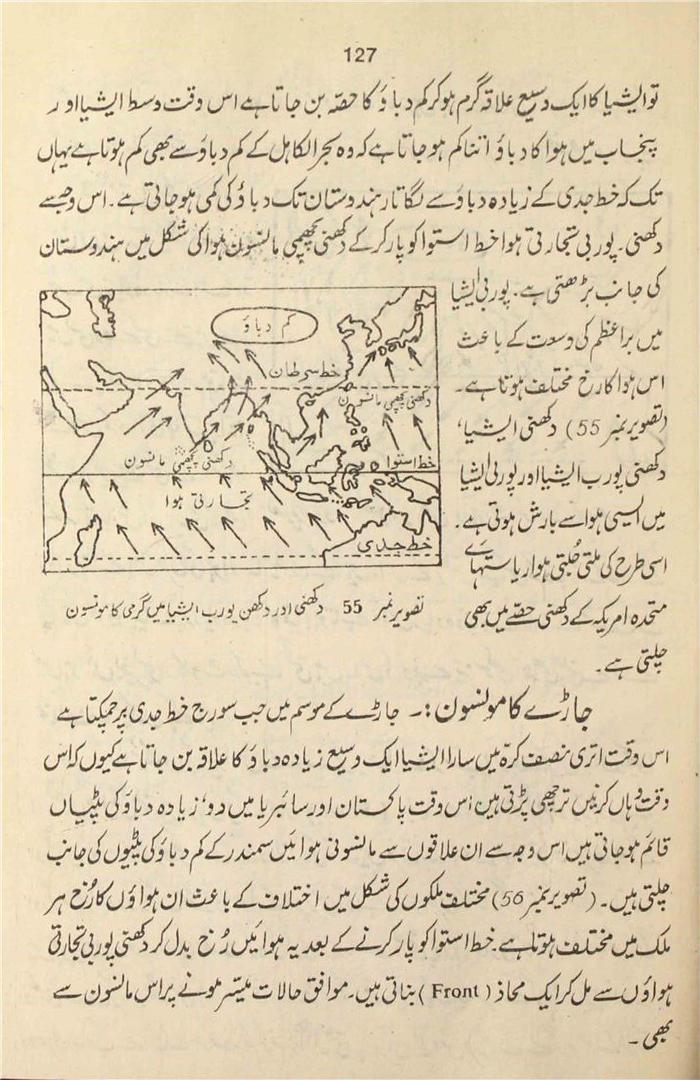 127
تو ایشیا کا ایک وسیع علاقہ گرم ہو کر کم دباؤ کا حصّہ بن جاتا ہے اس وقت وسط ایشیا اور
پنجاب میں ہوا کا دباؤ اتنا کم ہو جاتا ہے کہ وہ بحر الکاہل کے کم دباؤ سے بھی کم ہوتا ہے یہاں
تک کہ خط جدی کے زیادہ دباؤ سے لگاتار ہندوستان تک دباؤ کی کمی ہو جاتی ہے۔ اس وجہ سے
دکھنی۔ پوربی تجارتی ہوا خط استوا کو پار کر کے دکھنی پچھمی مانسون ہوا کی شکل میں ہندوستان
کی جانب بڑھتی ہے۔ پوربی ایشیا
میں براعظم کی وسعت کے باعث
اس ہوا کا رخ مختلف ہوتا ہے۔
(تصویر نمبر 55) دکھنی ایشیا،
دکھنی پورب ایشیا اور پوربی ایشیا
میں ایسی ہوا سے بارش ہوتی ہے۔
اسی طرح کی ملتی جُلتی ہوا ریاستہائے
متحدہ امریکہ کے دکھنی حصّے میں بھی
چلتی ہے۔
کم دباؤ
خط سرطان
دکھنی پچھمی مانسون
دکھنی پچھمی مانسون
خط استوا
تجارتی ہوا
خط جدی
تصویر نمبر 55 دکھنی اور دکھن پورب ایشیا میں گرمی کا مونسون
جاڑے کا مونسون :۔ جاڑے کے موسم میں جب سورج خط جدی پر چمکتا ہے
اس وقت اتری نصف کرّہ میں سارا ایشیا ایک وسیع زیادہ دباؤ کا علاقہ بن جاتا ہے کیوں کہ اس
وقت وہاں کرنیں ترچھی پڑتی ہیں اُس وقت پاکستان اور سائبریا میں دو، زیادہ دباؤ کی پٹیاں
قائم ہو جاتی ہیں اس وجہ سے ان علاقوں سے مانسونی ہوائیں سمندر کے کم دباؤ کی پٹیوں کی جانب
چلتی ہیں۔ (تصویر نمبر 56) مختلف ملکوں کی شکل میں اختلاف کے باعث ان ہواؤں کا رُخ ہر
ملک میں مختلف ہوتا ہے۔ خط استوا کو پار کرنے کے بعد یہ ہوائیں رُخ بدل کر دکھنی پوربی تجارتی
ہواؤں سے مل کر ایک محاذ (Front) بناتی ہیں۔ موافق حالات میسّر ہونے پر اس مانسون سے
بھی۔